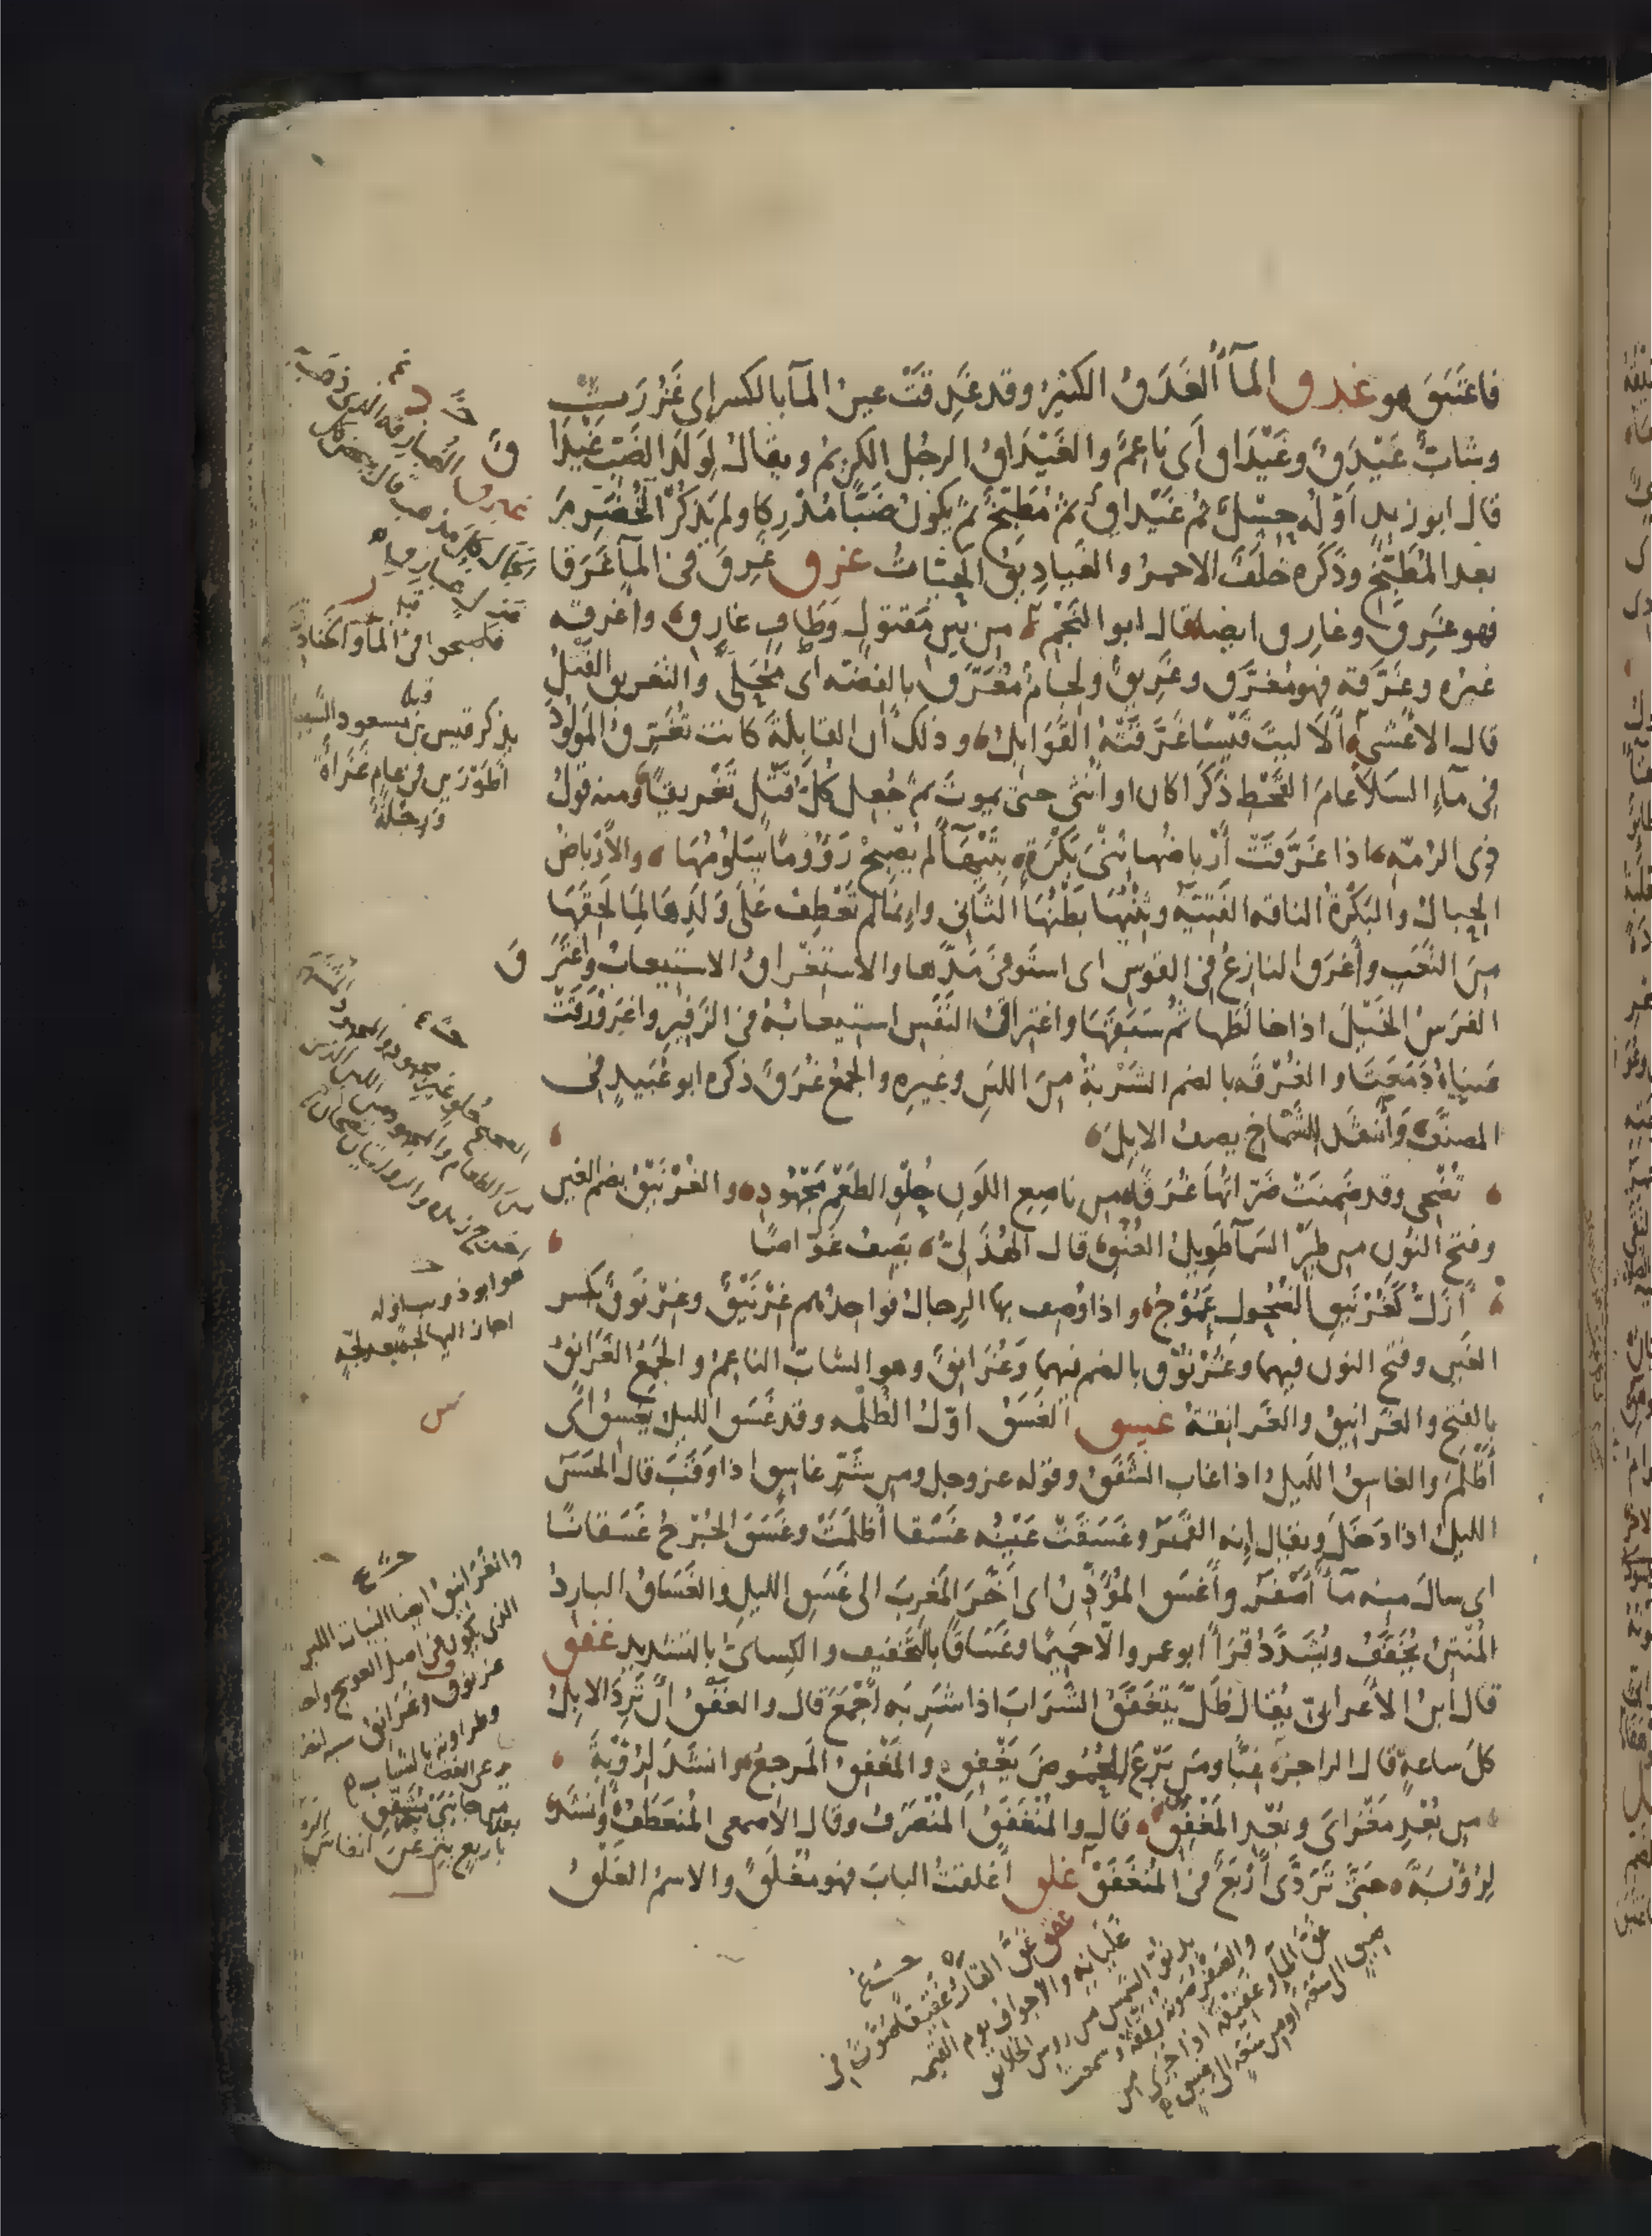 فاغتبق هو غدق المآ أُلغَدَقُ الكثيرُ وقد غَدِقَتْ عينُ المآ بالكسر اى غَزُرَت
وشابٌّ غَيْدَقٌ وغَيْدَاقٌ أى ناعمٌ والغَيْدَاقُ الرجُل الكريمُ ويقالُ لوَلَدِ الضَبّ غَيْدَا
قال ابو زيدٍ أوّلُه حِسْلٌ ثم غَيْداقٌ ثم مُطَبِّخٌ ثم يكونُ ضَبًّا مُدْرِكا ولم يَذكُرِ الخُضَرِمَ
بعد المُطَبِّخ وذَكَره خلَفٌ الاحمرُ والغَيادِيقُ الحيّاتُ غرق غَرِقَ فى المآ غَرَقا
فهو غَرِقٌ وغارِق ايضا قال ابو النَجْم من بين مَقتولٍ وَطافٍ غارِق وأغرقه
غيرُه وغَرَّقه فهو مُغرَّق وغَرِيقٌ ولجامٌ مُغَرَّق بالفضّه اى مُحَلَّى والتغريق القَتْلُ
قال الأعْشى أَلَا ليتَ قَيْسًا غَرَّقَتْهُ القَوَابِلُ وذلك أن القابلةَ كانت تُغَرِّقُ المَوْلُودَ
فى مآءِ السَلَا عامَ القَحْطِ ذَكَرًا كان او أُنثى حتى يموتَ ثم جُعِل كلُّ قَتْلٍ تَغْرِيقًا ومنه قولُ
ذى الرُمّه اذا غَرَّقَتْ أَرْباضُها ثِنْىَ بَكْرَةٍ بِتَيْهَآءَ لم تُصْبِحْ رَؤُومًا سَلُوبُهَا والأَرْباضُ
الحِبالُ والبَكْرَةُ الناقه الفَتِيّه وثِنْيُهَا بَطْنُهَا الثَانى وإنما لم تَعْطِفْ عَلَى وَلَدِها لِمَا لَحِقَهَا
مِنَ التَعَبِ وأَغرَق النازِعُ فى القوسِ اى استَوفى مَدَّها والاستغراقُ الاستيعابُ واغتَرَ
قَ
الفرَسُ الخَيْلَ اذا خالَطَها ثم سَبَقَهَا واغتِراقُ النَفَسِ استيعابُهُ فى الزَفِير واغرَوْرَقَتْ
عَينَاهُ دَمَعَتَا والغُرْقَه بالضم الشَرْبةُ مِنَ اللبَنِ وغيرِه والجمعُ غُرَقٌ ذكره ابو عُبَيدٍ فى
المصنَّف وأنشَد للشَّمّاخ يصف الابِلَ
تُضْحِى وقد ضَمِنَتْ ضَرّاتُهَا غُرَقًا من ناصِعِ اللَونِ حُلْوِ الطَعْمِ مَجْهُودِ والغُرْنَيْقُ بضم الغين
وفتح النُون من طَيْرِ المآ طَوِيلُ العُنُقِ قال الهُذَلىّ يَصِف غَوّاصًا
أزَلُّ كَغُرْنَيقِ الضُحُولِ عَمُوْجُ واذا وُصِف بها الرِجالُ فواحِدُهم غِرْنَيْقٌ وغِرْنَوقٌ بكسر
الغَين وفتح النون فيهما وغُرْنُوقٌ بالضم فيهما وغُرَانِقٌ وهو الشَابّ الناعِمُ والجَمعُ الغَرَانِقُ
بالفتح والغَرانِيقُ والغَرانِقةُ غسق الغَسَقُ اوّلُ الظُلْمه وقد غَسَق الليل يَغْسِقُ اى
أَظْلَمَ والغاسِقُ الليلُ اذا غاب الشَفَقُ وقوله عز وجل ومن شَرّ غاسِقٍ اذا وَقَبَ قال الحَسَن
الليلُ اذا دَخَلَ ويقال إنه القَمَر وغَسَقَتْ عَيْنُه غَسْقا أظلَمَتْ وغَسَقَ الجُرْحُ غَسَقانًا
اى سالَ منه مآءٌ أَصْفَر وأَغسَق المُؤَذّنُ اى أَخَّرَ المَغرِبَ الى غَسَقِ الليلِ والغَسَاقُ البارِدُ
المُنْتِنُ يُخَفَّفُ ويُشَدَّدُ قَرَأَ ابو عمرو الّا حَمِيمًا وغَسَاقًا بالتَخفيف والكِسائىّ بالتشديد غفق
قال ابنُ الأعرابىّ يُقال ظَلَّ يَتَغَفَّقُ الشَرَابَ اذا شَرِبَه أَجْمَعَ قال والغَفْقُ أن تَرِدَ الابِلُ
كلَّ ساعةٍ قال الراجز غِبًّا ومَن يَرْعَ الحُمُوضَ يَغْفِقِ والمَغْفِقُ المَرجِعُ وانشَد لِرُؤْبةَ
من بُعْدِ مَغْزَاىَ وبُعْدِ المَغْفِقِ قال والمُنْغَفَقُ المُنْصَرَفُ وقال الأصمعى المُنعَطَفُ وأنشَد
لِرُؤبَةَ حتى تَرَدَّى أَرْبَعٌ فى المُنْغَفَقْ غلق أَغلَقتُ البابَ فهو مُغْلَقٌ والاسمُ الغَلْقُ
فاصبحوا فى المآ والخنادق
قبله
يذكر قيس بن مسعود الشيبا
أطَوْرَين فى عامٍ غَزَاةً
ورِحْلَةً
هو ابو ذويب واوله
اجاز اليها لجة بعد لجة
س
والغرانيق ايضا النبات اللين
الذى يكون فى اصل العوسج واحدها
غرنوق وغرانق
غقق غَقَّ القارُ غَقِيقًا صَوَّتَ فى
غَلَيانِه
يوم القيمه
والصَقْرُ
غقّ المآ وغقيقه اذا جَرَى من
ضِيقٍ الى سَعَه او من سَعَه الى ضيق